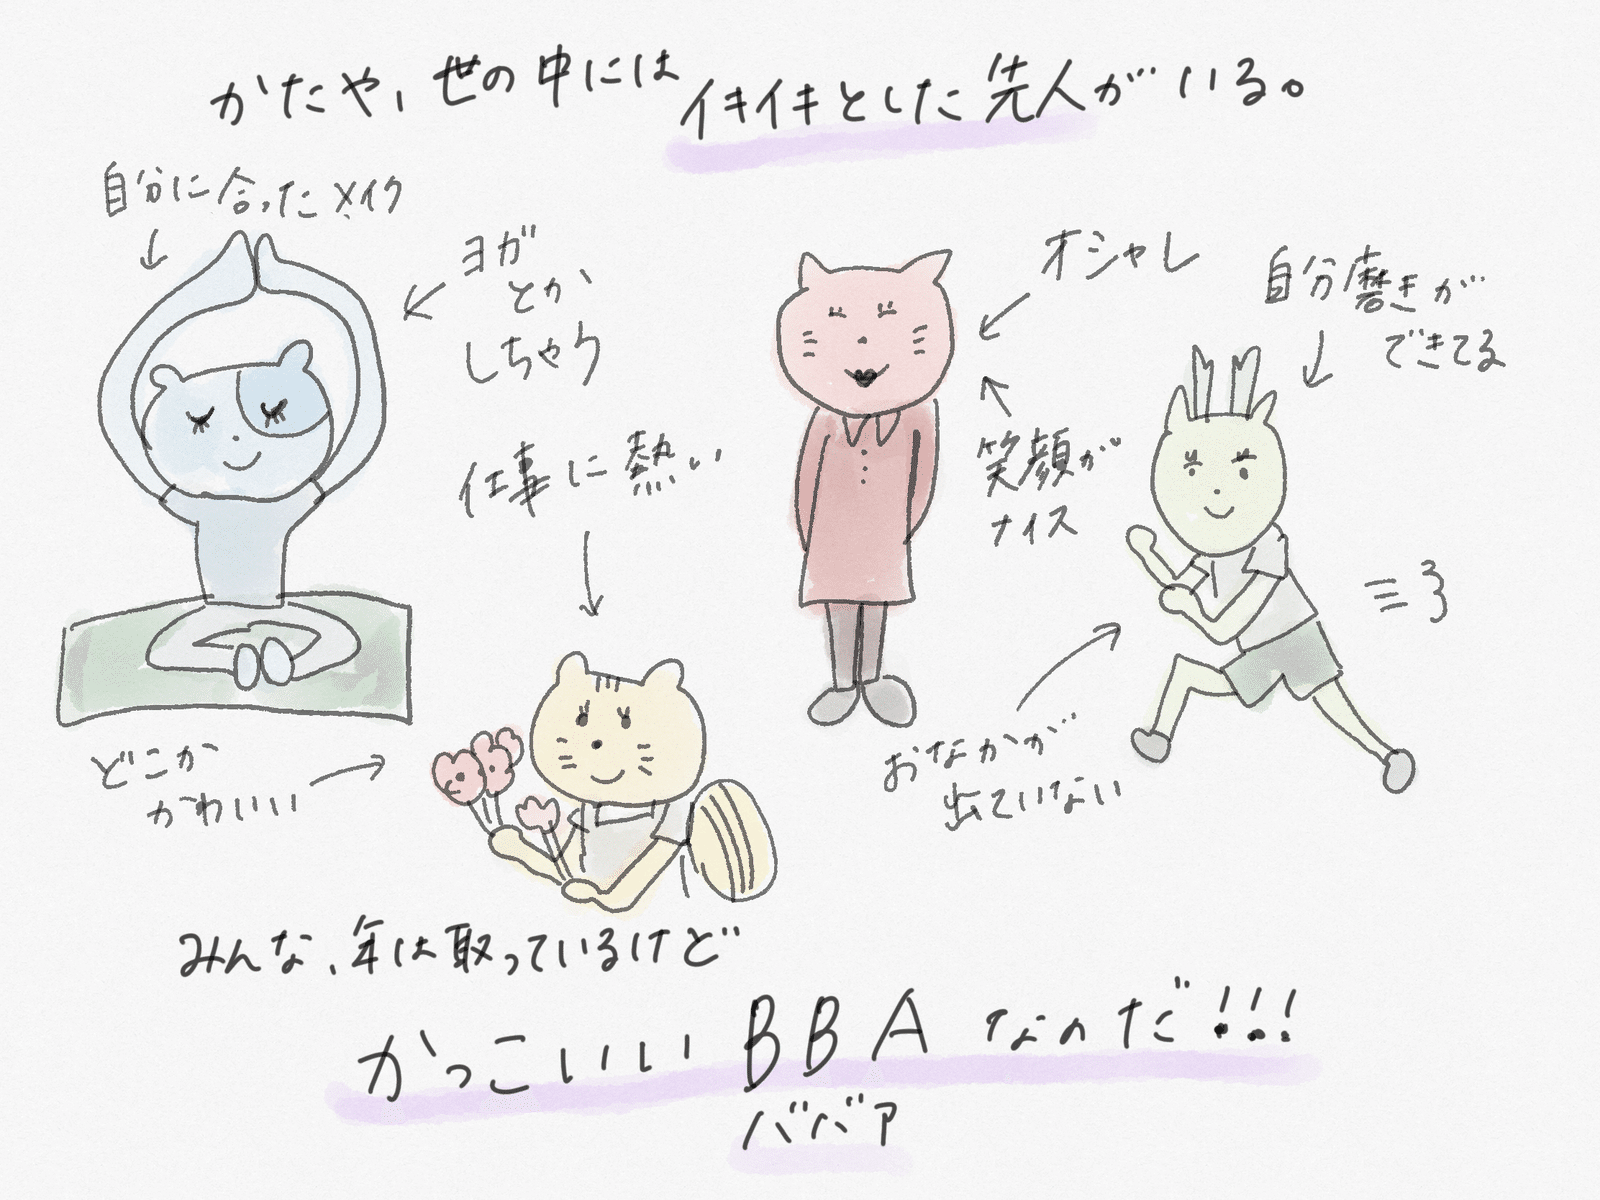 かたや、世の中にはイキイキとした先人がいる。
自分に合ったメイク
ヨガ
とか
しちゃう
オシャレ
自分磨きが
できてる
仕事に熱い
笑顔が
ナイス
どこか
かわいい
おなかが
出ていない
みんな、年は取っているけど
かっこいいBBAなのだ!!!
ババア